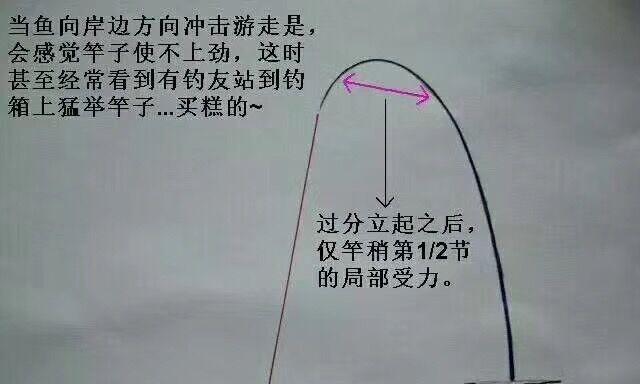 当鱼向岸边方向冲击游走是，
会感觉竿子使不上劲，这时
甚至经常看到有钓友站到钓
箱上猛举竿子...买糕的~
过分立起之后，
仅竿稍第1/2节
的局部受力。